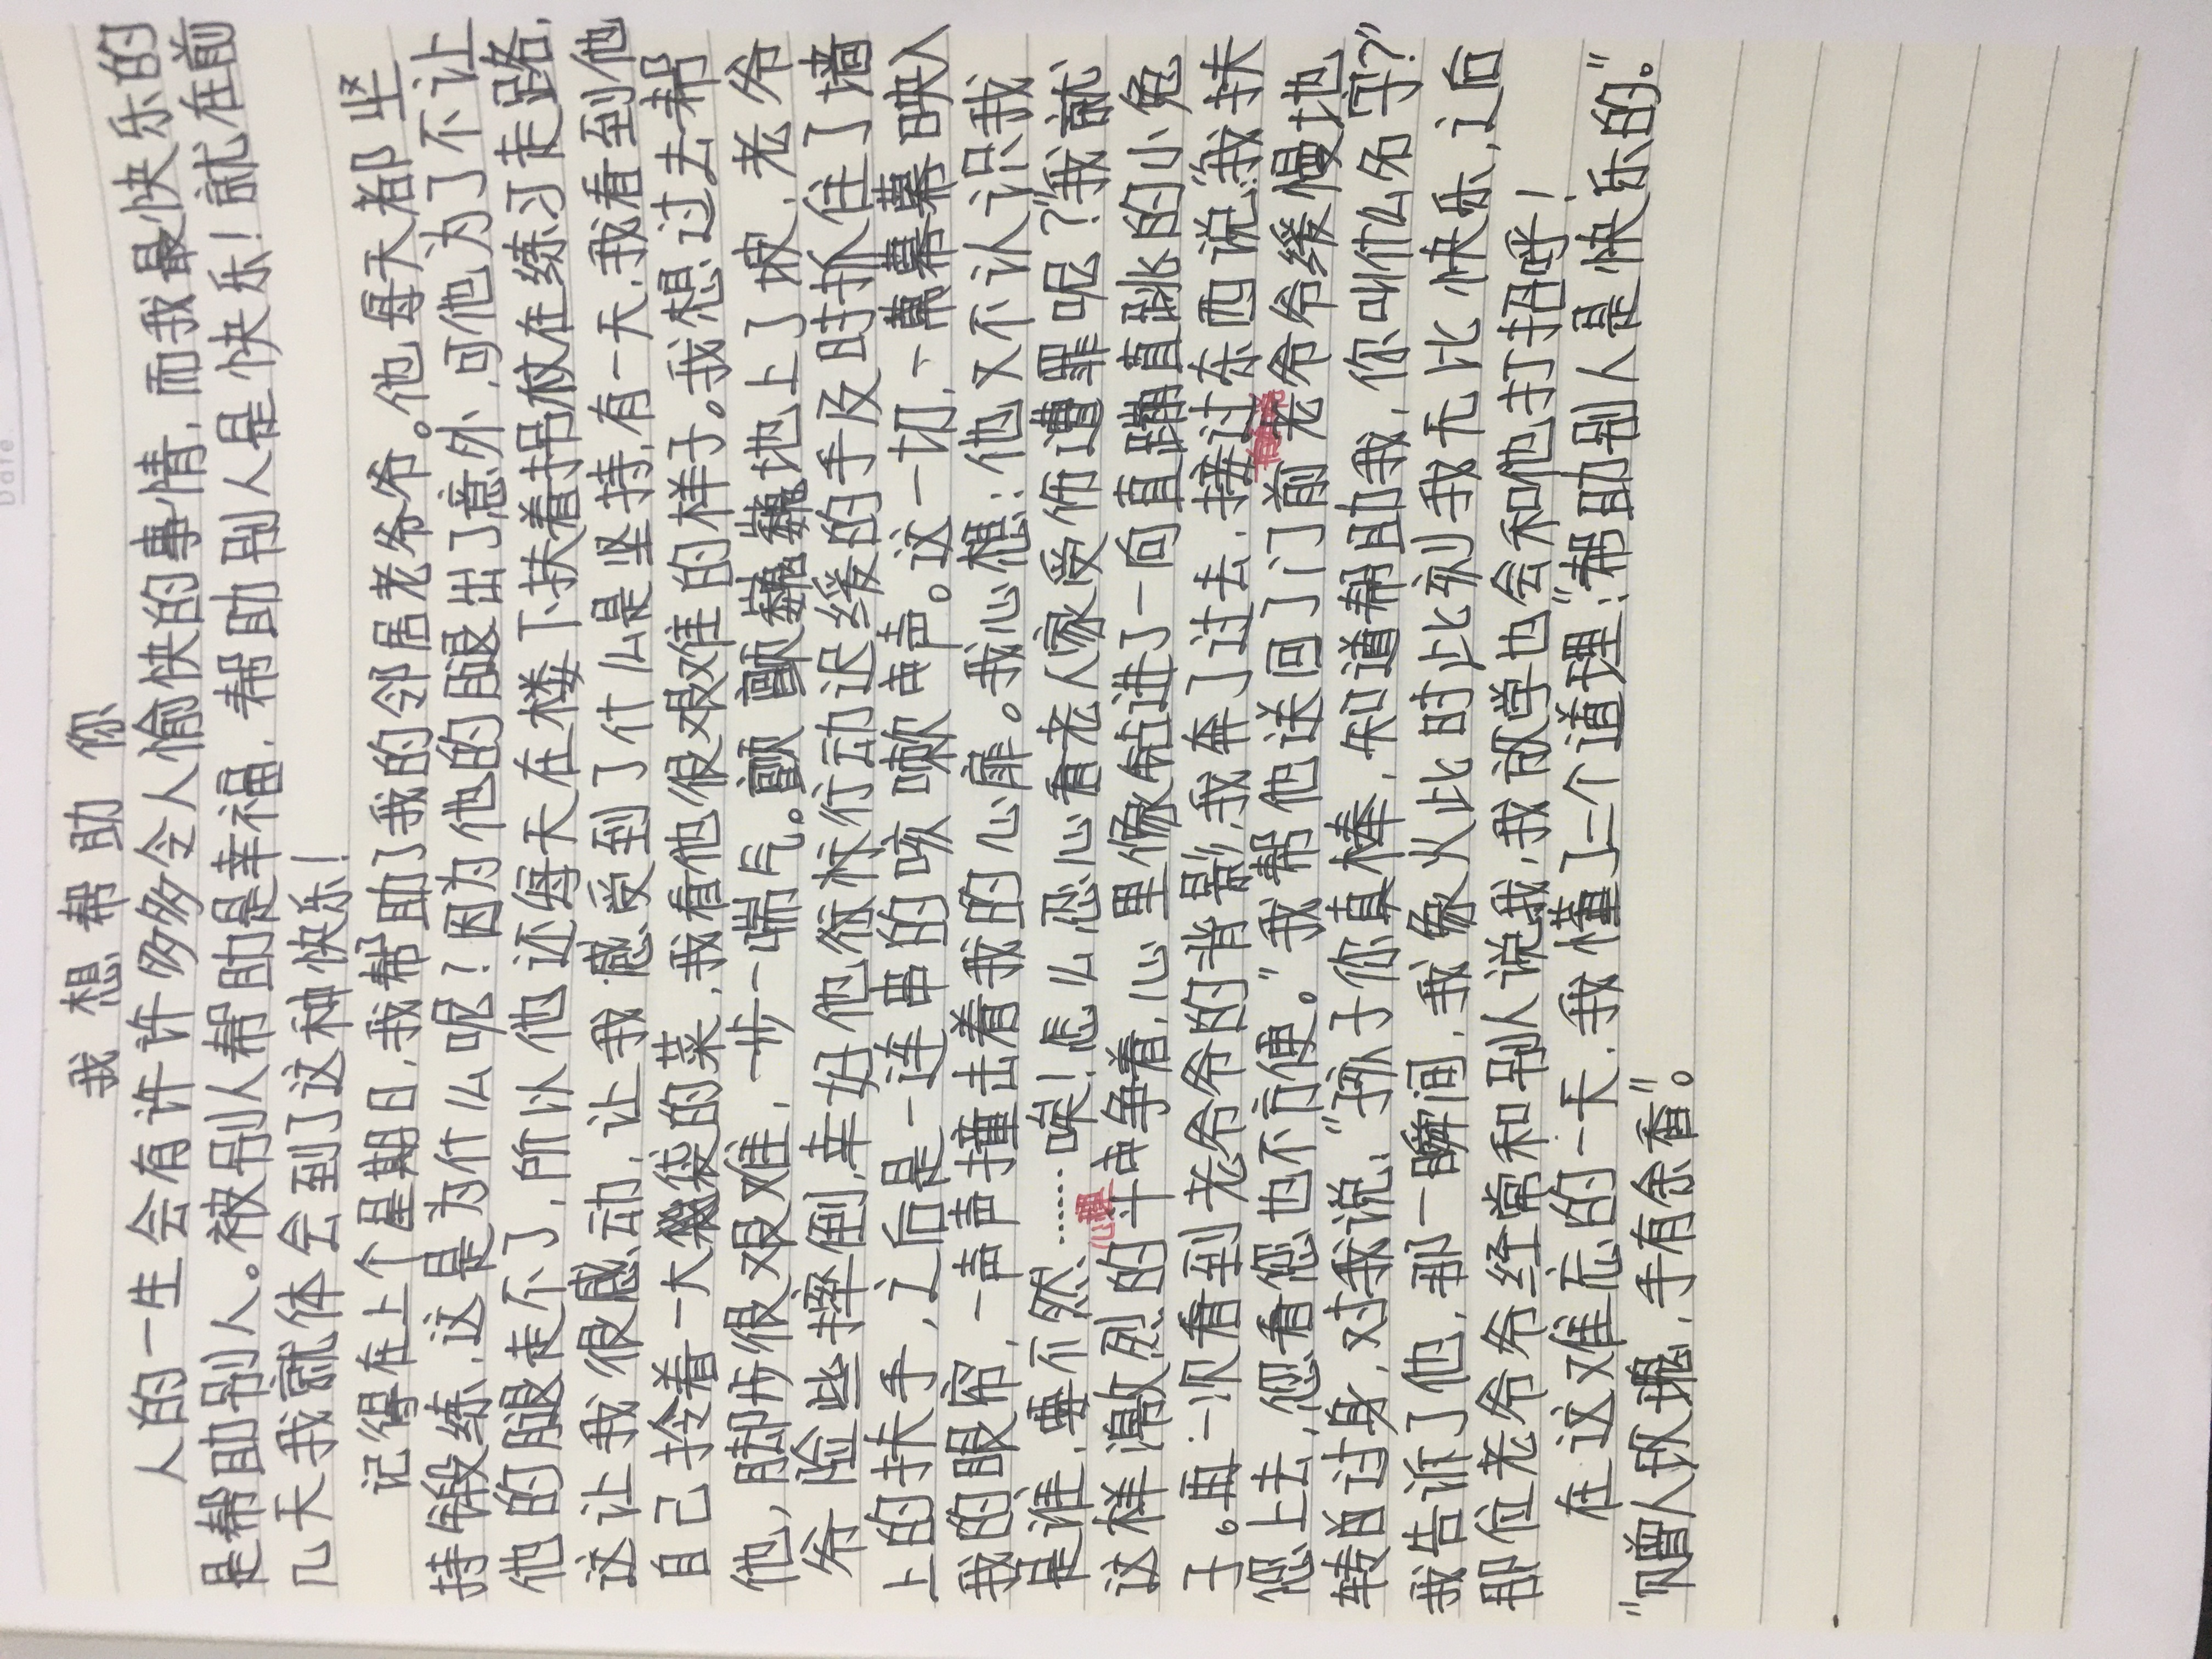 Date
我想帮助你
人的一生会有许许多多令人愉快的事情,而我最快乐的
是帮助别人。被别人帮助是幸福,帮助别人是快乐!就在前
几天我就体会到了这种快乐!
记得在上个星期日,我帮助了我的邻居老爷爷。他每天都坚
持锻练,这是为什么呢?因为他的腿出了意外,可他为了不让
他的腿走不了,所以他还每天在楼下扶着拐杖在练习走路,
这让我很感动,让我感受到了什么是坚持,有一天,我看到他
自己拎着一大袋的菜,我看他很艰难的样子。我想过去帮
他,脚步很艰难,一步一喘气。颤颤巍巍地上了坡,老爷
爷险些摔倒,幸好他行动迟缓的手及时抓住了墙
上的扶手,之后是一连串的咳嗽声。这一切,一幕幕映入
我的眼帘,一声声撞击着我的心扉。我心想:他又不认识我
是谁,要不然……唉!怎么忍心看老人家受伤遭罪呢?"我就
这样激烈的斗争着,心里像钻进了一向直蹦直跳的小兔
心里
子。再一次看到老爷爷的背影,我奔了过去,接过东西说:"我扶
您上去,您看您也不方便。"我帮他送回了门前老爷爷缓慢地
转过身,对我说:"孩子你真棒,知道帮助我,你叫什么名字?"
我告诉了他,那一瞬间,我象火此时此刻我无比快乐,之后
那位老爷爷经常和别人说我,我放学也会和他打招呼!
在这难忘的一天,我懂了一个道理:"帮助别人是快乐的。"
"赠人玫瑰,手有余香"。